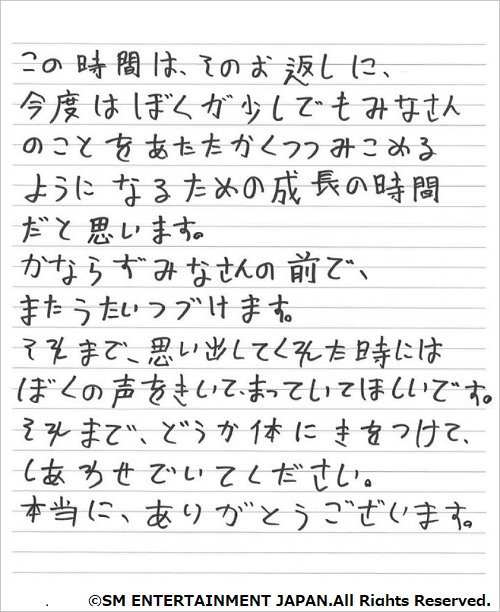 この時間は、そのお返しに、
今度はぼくが少しでもみなさん
のことをあたたかくつつみこめる
ようになるための成長の時間
だと思います。
かならずみなさんの前で、
またうたいつづけます。
それまで、思い出してくれた時には
ぼくの声をきいて、まっていてほしいです。
それまで、どうか体にきをつけて、
しあわせでいてください。
本当に、ありがとうございます。
©SM ENTERTAINMENT JAPAN.All Rights Reserved.